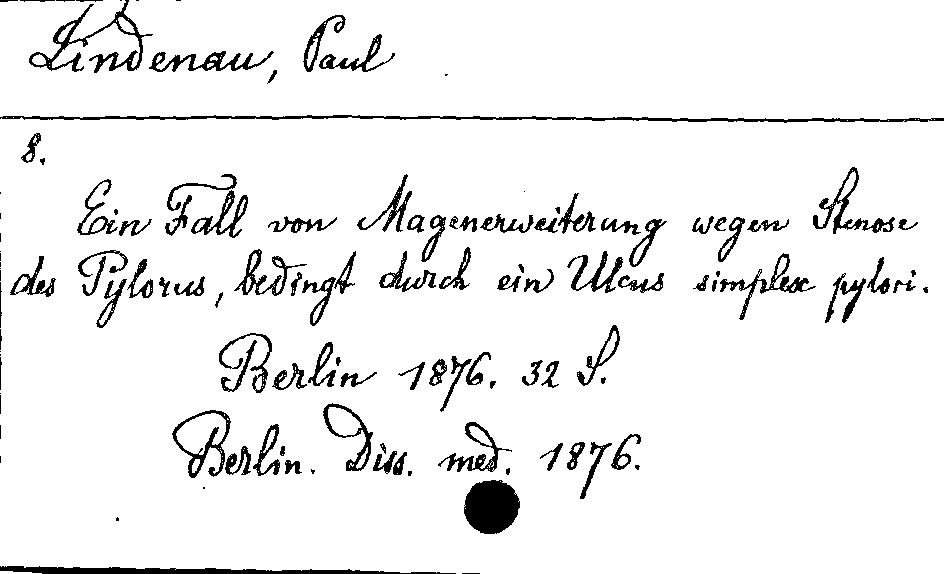 Lindenau, Paul
8.
Ein Fall von Magenerweiterung wegen Stenose
des Pylorus, bedingt durch ein Ulcus simplex pylori.
Berlin 1876. 32 S.
Berlin. Diss. med. 1876.